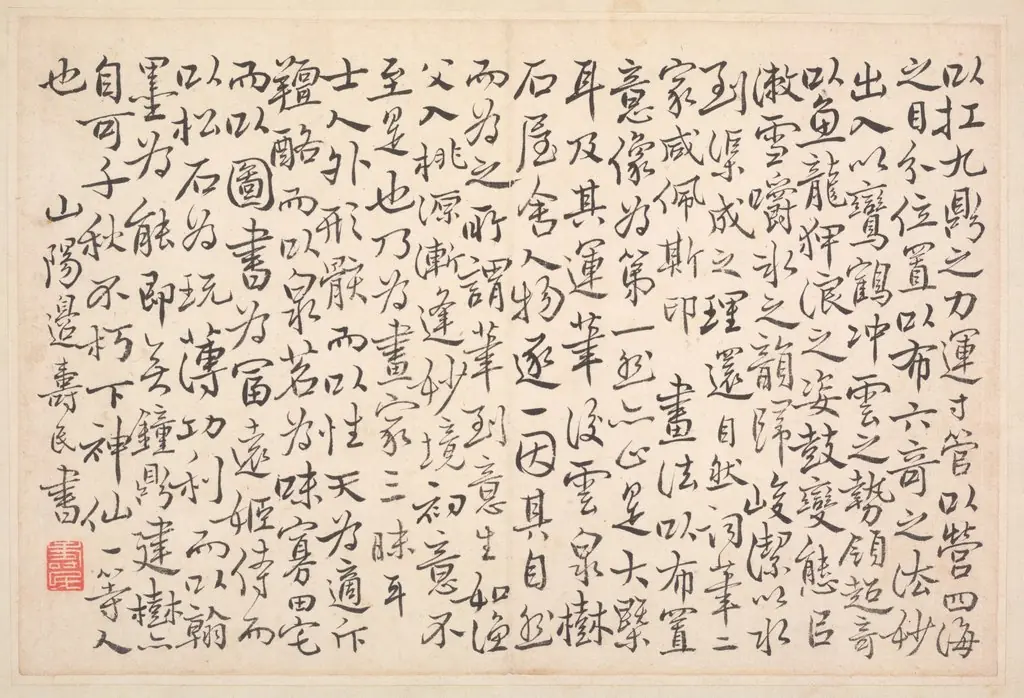 以扛九鼎之力運寸管以營四海
之目分位置以布六奇之法妙
出入以鸞鶴冲雲之勢領超奇
以魚龍狎浪之姿鼓變態臣
漱雪嚼冰之韻歸峻潔以水
到渠成之理還自然詞筆二
家咸佩斯印 畫法以布置
意像為第一然亦止是大槩
耳及其運筆後雲泉樹
石屋舍人物逐一因其自然
而為之所謂筆到意生如漁
父入桃源漸逢妙境初意不
至是也乃為畫家三昧耳
士人外形骸而以性天為適斥
羶酪而以泉茗為味寡田宅
而以圖書為富遠姬侍而
以松石為玩薄功利而以翰
墨為能即無鐘鼎建樹亦
自可千秋不朽下神仙一等人
也 山陽邊壽民書
壽民